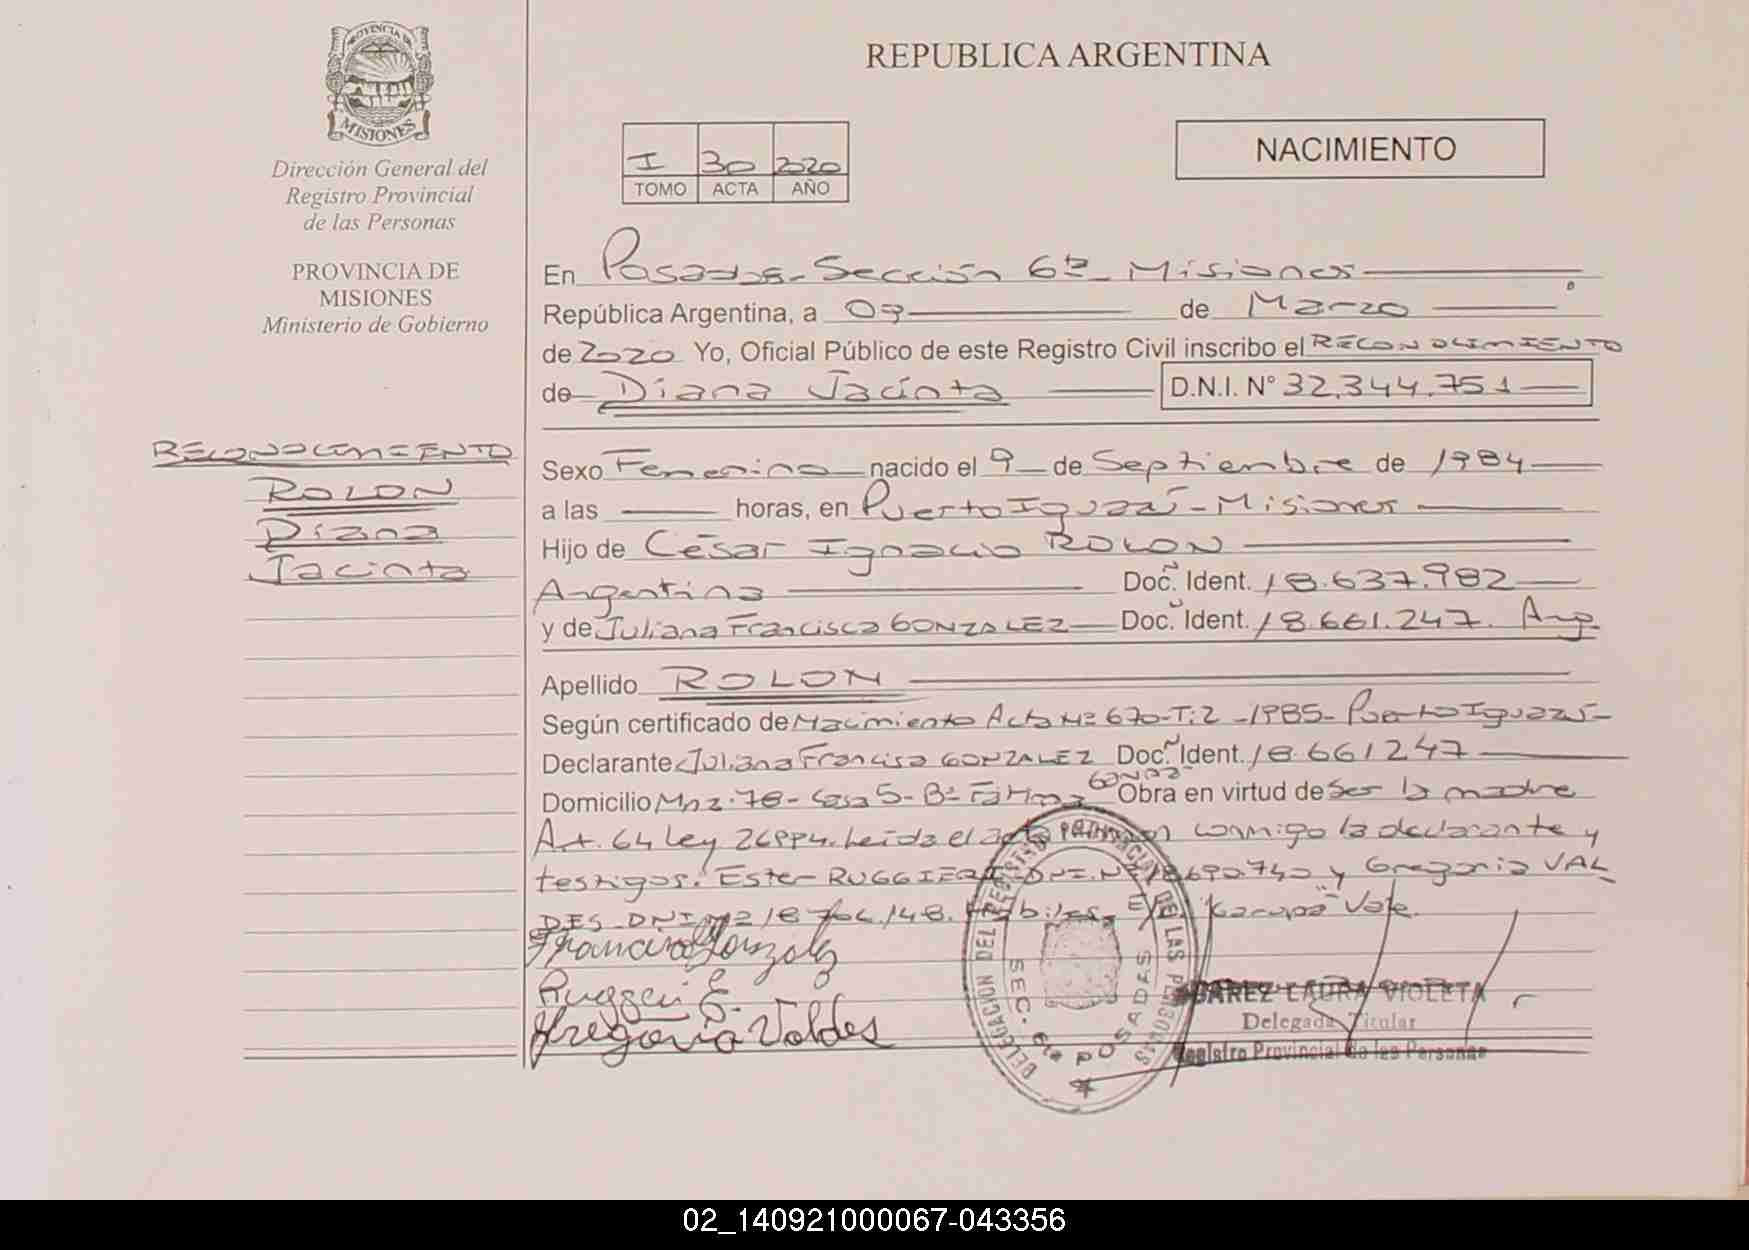 PROVINCIA DE
MISIONES
Dirección General del
Registro Provincial
de las Personas
PROVINCIA DE
MISIONES
Ministerio de Gobierno
RECONOCIMIENTO
ROLON
Diana
Jacinta
REPUBLICA ARGENTINA
I 30 2020
TOMO ACTA AÑO
NACIMIENTO
En Posadas-Sección 6ta- Misiones
República Argentina, a 09 de Marzo
de 2020 Yo, Oficial Público de este Registro Civil inscribo el RECONOCIMIENTO
de Diana Jacinta D.N.I. N° 32.344.751
Sexo Femenino nacido el 9 de Septiembre de 1984
a las horas, en Puerto Iguazú - Misiones
Hijo de César Ignacio ROLON
Argentina Doc. Ident. 18.637.982
y de Juliana Francisca GONZALEZ Doc. Ident. 18.661.247. Arg.
Apellido ROLON
Según certificado de Nacimiento Acta Nº 670-T:2 -1985- Puerto Iguazú-
Declarante Juliana Francisa GONZALEZ Doc. Ident. 18.661247
Domicilio Mnz. 78- Casa 5- Bº Fátima Obra en virtud de Ser la madre
Art. 64 Ley 26994. Leída el acta conmigo la declarante y
testigos: Ester RUGGIERI DNI. Nº 18690.740 y Gregoria VAL
DES DNI Nº 18.706.148. Hábiles. E/L "Garupá" Vale.
Francisca Gonzalez
Ruggeri E.
Gregoria Valdes
DELEGACION DEL REGISTRO PROVINCIAL DE LAS PERSONAS
SEC. 6ta POSADAS
SUAREZ LAURA VIOLETA
Delegada Titular
Registro Provincial de las Personas
02_140921000067-043356